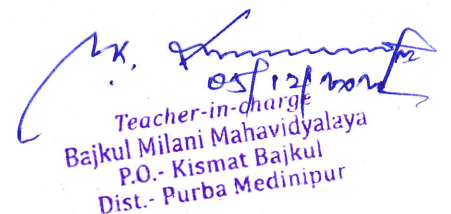 05/12/202
Teacher-in-charge
Bajkul Milani Mahavidyalaya
P.O.- Kismat Bajkul
Dist.- Purba Medinipur